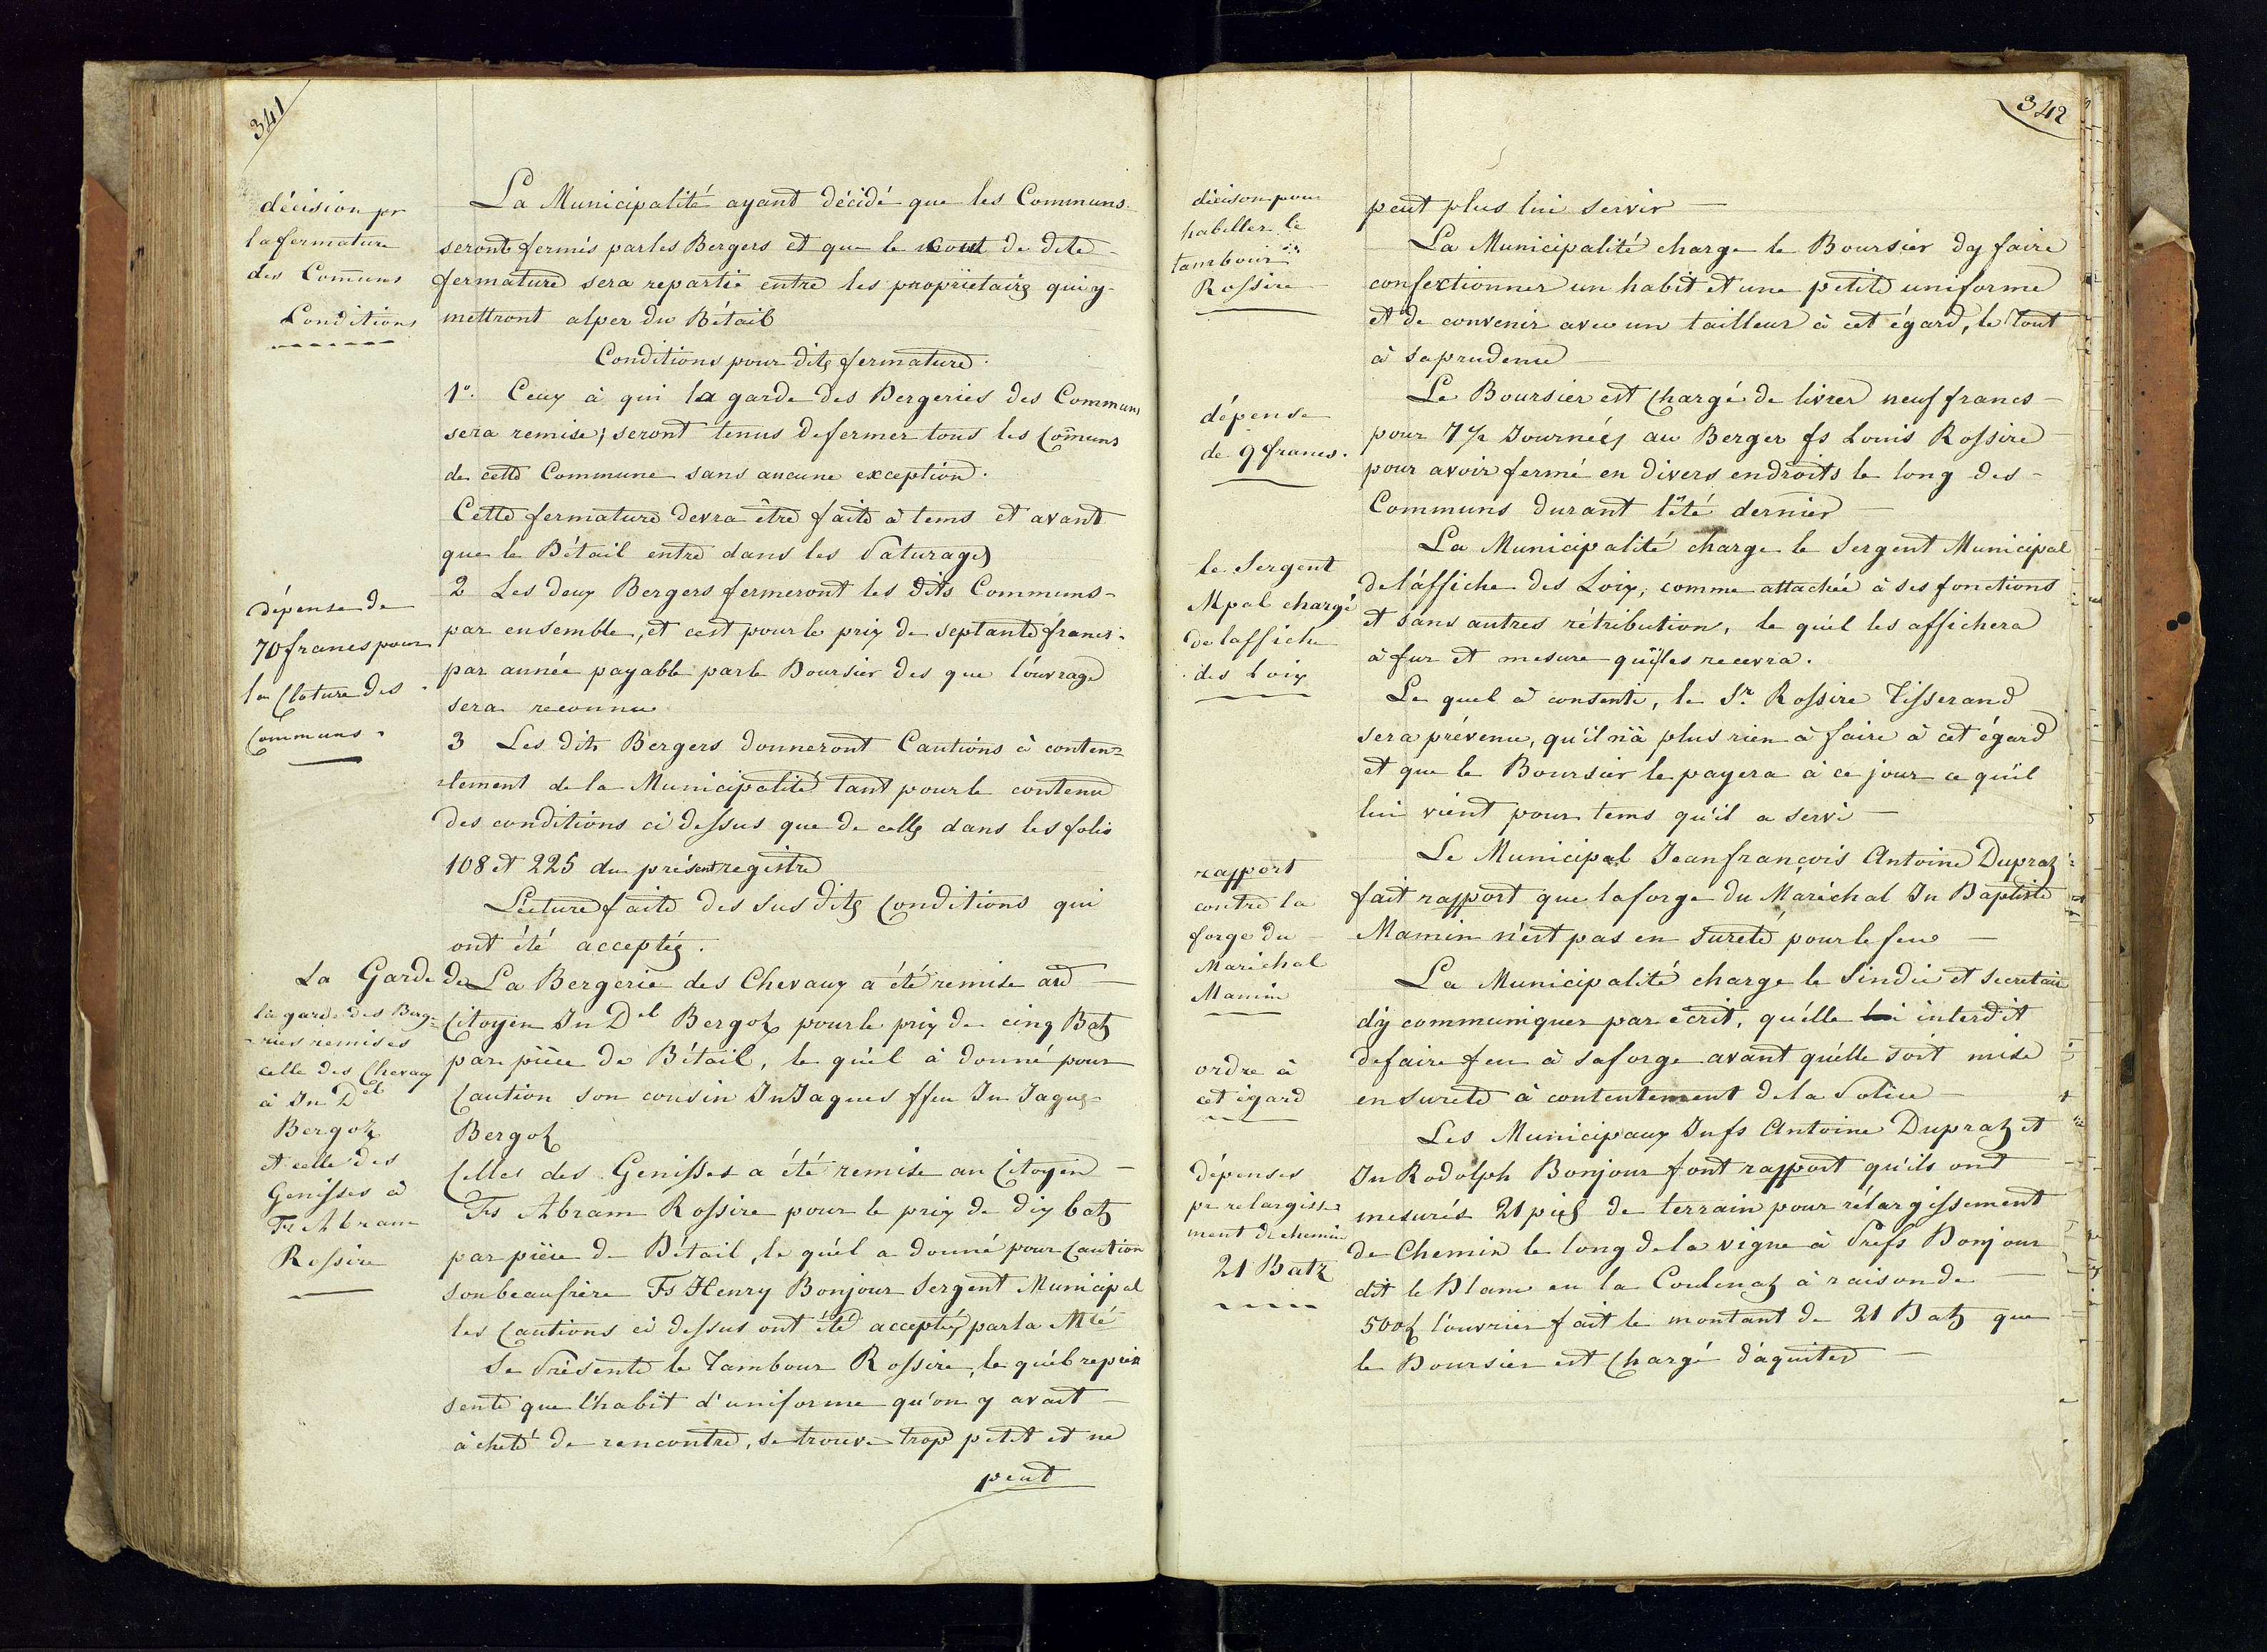 341
décision pr
la fermature
des Com̄uns
Conditions
La Municipalité ayant décidé que les Communs
seront fermés par les Bergers et que le cout de dite
fermature sera repartie entre les propriëtaires qui y
mettront alper du Bétail
Conditions pour dite fermature.
1º. Ceux à qui la garde des Bergeries des Communs
sera remise; seront tenus de fermer tous les Com̄uns
de cette Commune sans aucune exception.
Cette fermature devra être faite à tems et avant
que le Bétail entre dans les Paturages
dépense de
70 francs pour
la Cloture des
Communs.
2 Les deux Bergers fermeront les dits Communs
par ensemble, et cest pour le prix de septante francs
par année payable par le Boursier des que l'ouvrage
sera reconnu
3 Les dits Bergers donneront Cautions à conten=
=tement de la Municipalité tant pour le contenu
des conditions ci dessus que de celles dans les folio
108 et 225 du présent registre
Lecture faite des sus dites Conditions qui
ont été acceptées.
La Garde de
la garde des Berge-
-ries remises
celle des Chevaux
à Jn Del
Bergoz
et celle des
Genisses à
Fs Abram
Rossire
La Bergerie des Chevaux a été remise au
Citoyen Jn Del Bergoz pour le prix de cinq Batz
par pièce de Bétail, le quel à donné pour
Caution son cousin Jn Jaques ffeu Jn Jaques
Bergoz
Celles des Genisses a été remise au Citoyen
Fs Abram Rossire pour le prix de dix batz
par pièce de Bétail, le quel a donné pour Caution
son beaufrère Fs Henry Bonjour Sergent Municipal
les Cautions ci dessus ont été acceptées par la Mté
Se Présente le Tambour Rossire, le quel repré
sente que l'habit d'uniforme qu'on y avait
àcheté de rencontre, se trouve trop petit et ne
peut
342
décison pour
habiller le
tambour
Rossire
peut plus lui servir
La Municipalité charge le Boursier dy faire
confectionner un habit et une petite uniforme
et de convenir avec un tailleur à cet égard, le tout
à sa prudence
dépense
de 9 francs.
Le Boursier est Chargé de livrer neuf francs
pour 7 1/2 Journées au Berger fs Louis Rossire
pour avoir fermé en divers endroits le long des
Communs durant l'été dernier
le Sergent
Mpal chargé
de laffiche
des Loix
La Municipalité charge le Sergent Municipal
de l'affiche des Loix, comme attachée à ses fonctions
et sans autres rétribution, le quel les affichera
à fur et mesure qu'il les recevra.
Le quel à consenti, le Sr. Rossire Tisserand
sera prévenu, qu'il n'à plus rien à faire à cet égard
et que le Boursier le payera à ce jour ce qu'il
lui vient pour tems qu'il a servi
rapport
contre la
forge du
Maréchal
Mamin
Le Municipal Jean françois Antoine Dupraz
fait rapport que la forge du Maréchal Jn Baptiste
Mamin n'est pas en sureté pour le feu
ordre à
cet égard
La Municipalité charge le Sindic et Secretaire
d'y communiquer par écrit, qu'elle lui interdit
de faire feu à sa forge avant qu'elle soit mise
en sureté à contentement de la Police
dépenses
pr relargisse
ment de chemin
21 Batz
Les Municipaux Jnfs Antoine Dupraz et
Jn Rodolph Bonjour font rapport qu'ils ont
mesurés 21 pies de terrain pour rélargissement
de Chemin le long de la vigne à Prefs Bonjour
dit le Blanc en la Coulenaz à raison de
500 l'ouvrier fait le montant de 21 Batz que
le Boursier est Chargé d'aquiter